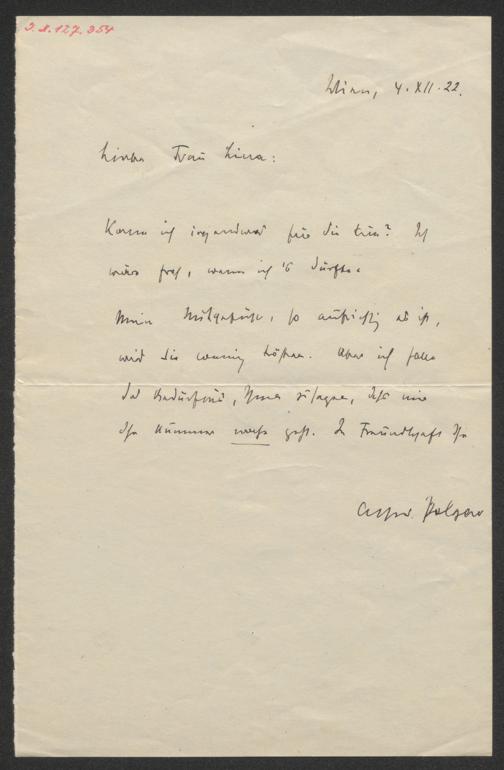 Wien, 4. XII. 22.
Liebe Frau Lina:
Kann ich irgendwas für Sie tun? Ich
wäre froh, wenn ich 's dürfte.
Mein Mitgefühl, so aufrichtig es ist,
wird Sie wenig trösten. Aber ich habe
das Bedürfnis, Ihnen zu sagen, daß mir
Ihr Kummer nahe geht. In Freundschaft Ihr
Alfred Polgar